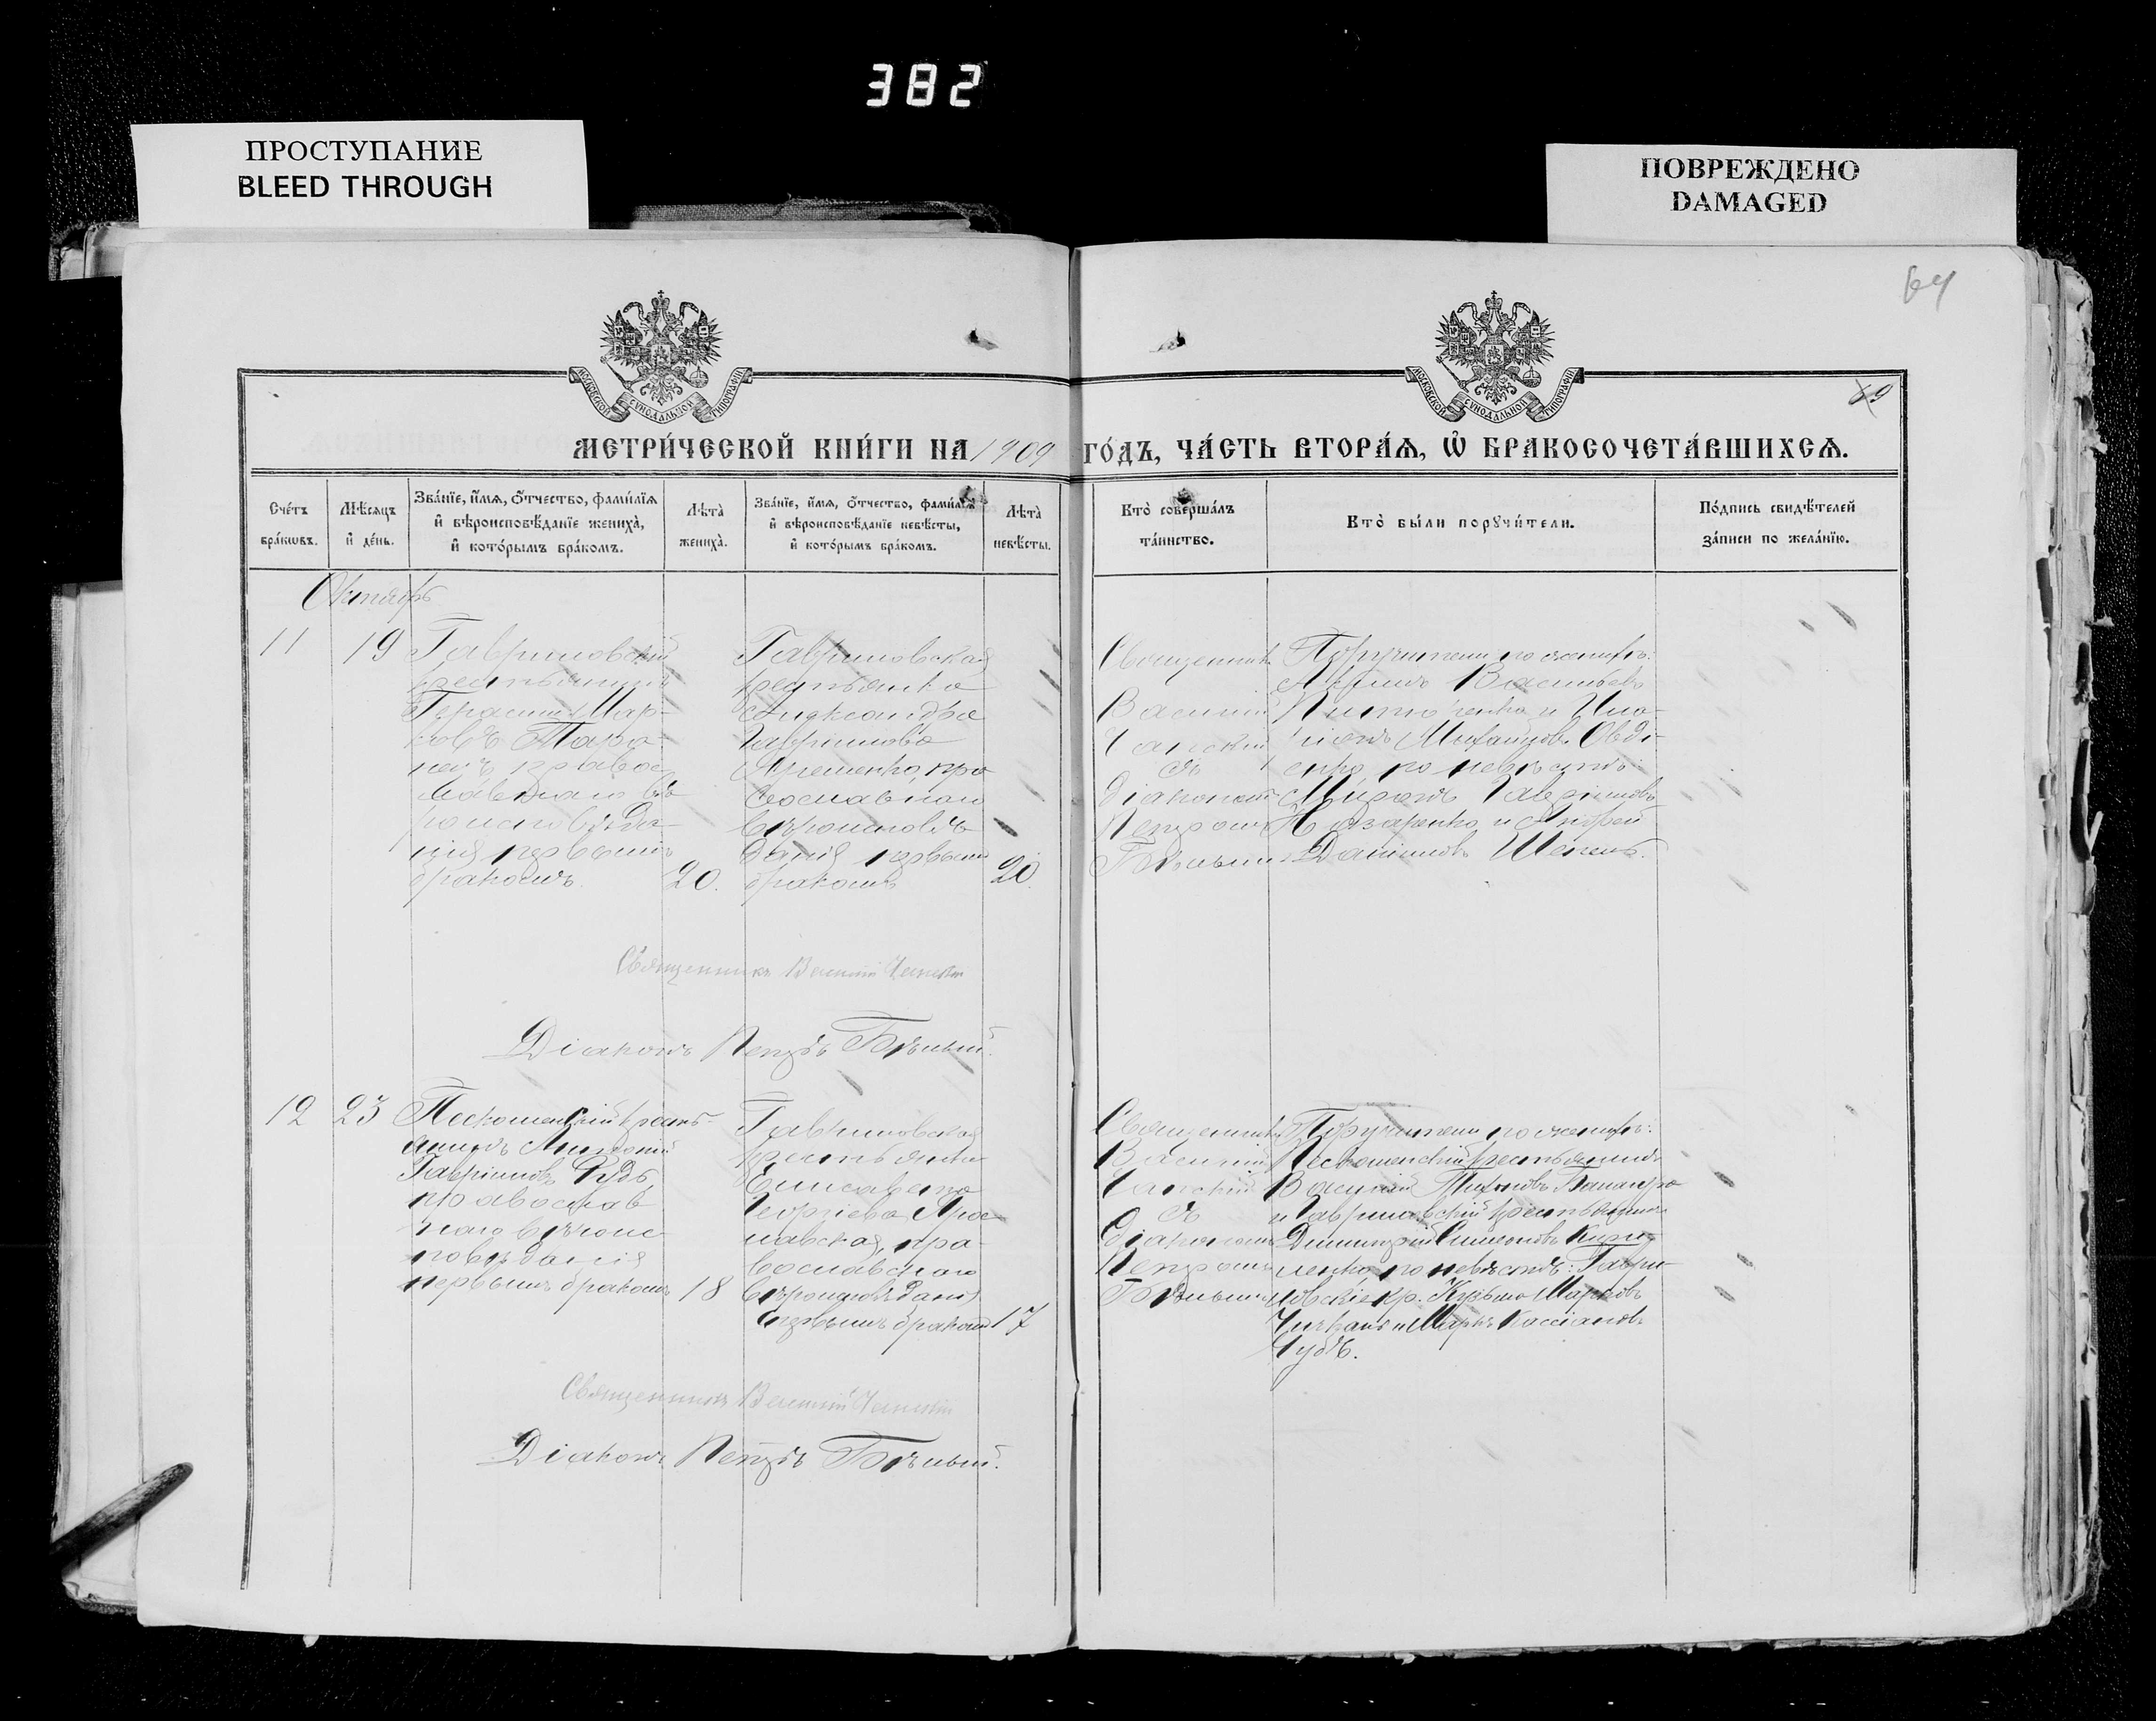 382
ПРОСТУПАНИЕ
BLEED THROUGH
ПОВРЕЖДЕНО
DAMAGED
64
69
МОСКОВСКОЙ СѴНОДАЛЬНОЙ ТИПОГРАФІИ
МОСКОВСКОЙ СѴНОДАЛЬНОЙ ТИПОГРАФІИ
МЕТРИ́ЧЕСКОЙ КНИ́ГИ НА 1909 ГО́ДЪ, ЧА́СТЬ ВТОРА́Ѧ, Ѽ БРАКОСОЧЕТА́ВШИХСѦ.
Сче́тъ
бра́кѡвъ.
Мѣ́сяцъ
и҆ де́нь.
Зва́нїе, и҆́мѧ, ѻ҆́тчество, фами́лїѧ
и҆ вѣроисповѣ́данїе жениха̀,
и҆ кото́рымъ бра́комъ.
Лѣта̀
жениха̀.
Зва́нїе, и҆́мѧ, ѻ҆́тчество, фами́лїѧ
и҆ вѣроисповѣ́данїе невѣ́сты,
и҆ кото́рымъ бра́комъ.
Лѣта̀
невѣ́сты.
Кто̀ соверша́лъ
та́инство.
Кто̀ бы́ли порꙋчи́тели.
По́дпись свидѣ́телей
за́писи по жела́нїю.
Октябрь
11
19
Гавриловскій
крестьянинъ
Герасимъ Мар-
ковъ Тара-
нецъ, правос-
лавнаго вѣ-
роисповѣда-
нія первымъ
бракомъ
20.
Гавриловская
крестьянка
Александра
Гавріилова
пра-
вославнаго
вѣроисповѣ-
данія первымъ
бракомъ
20.
Священникъ
Василій
Чапскій
съ
діакономъ
Петромъ
Бѣлымъ
Поручители по женихѣ:
Васильевъ
и
Михаиловъ Овді-
енко, по невѣстѣ:
Миронъ Гавріиловъ
Назаренко и Андрей
Даніиловъ Шепель.
Священникъ Василій Чапскій
Діаконъ Петръ Бѣлый.
12
23
Пескошенскій крест-
янинъ
Гавріиловъ
православ
наго вѣроис
повѣданія
первымъ бракомъ
18
Гавриловская
крестьянка
Елисавета
Георгіева Ярос-
лавская, пра-
вославнаго
вѣроисповѣданія
первымъ бракомъ
17
Священникъ
Василій
Чапскій
съ
діакономъ
Петромъ
Бѣлымъ
Поручители по женихѣ:
Пескошенскій крестьянинъ
Василій Тихоновъ
и Гавриловскій крестьянинъ
Димитрій Симеоновъ Кири-
ленко, по невѣстѣ: Гаври-
ловскіе кр. Кузьма Марковъ
и Маркъ Кассіановъ
Чубъ.
Священникъ Василій Чапскій
Діаконъ Петръ Бѣлый.